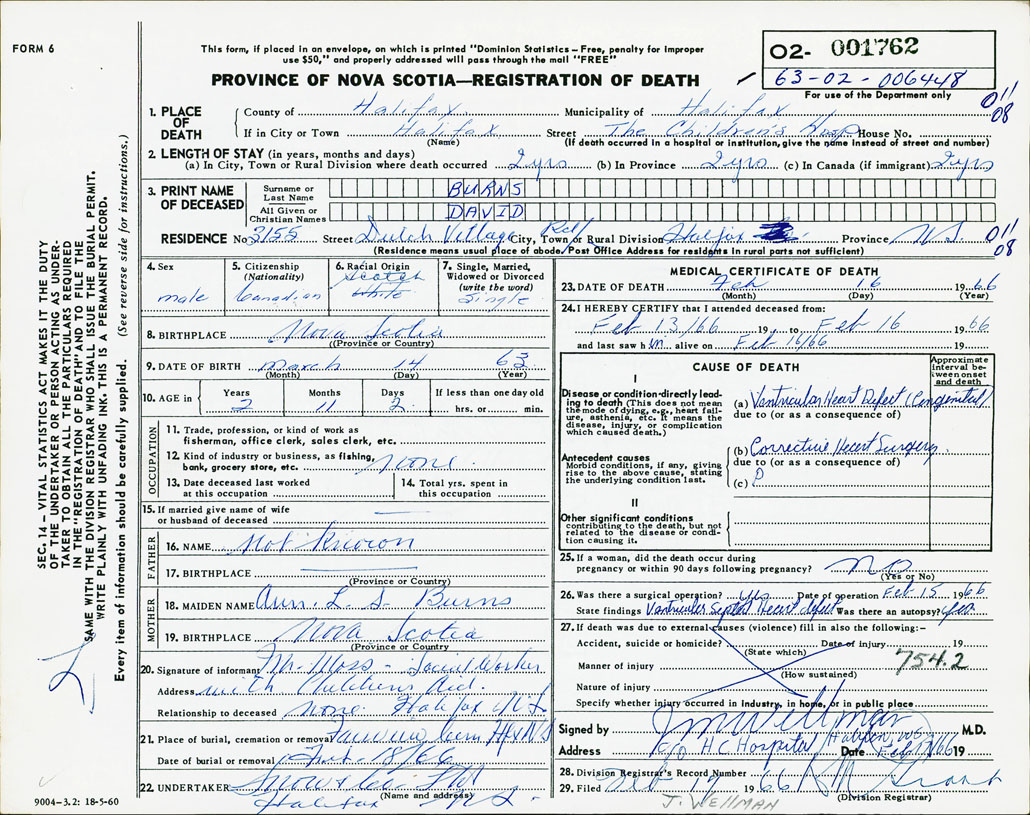 FORM 6
This form, if placed in an envelope, on which is printed "Dominion Statistics – Free, penalty for improper
use $50," and properly addressed will pass through the mail "FREE"
PROVINCE OF NOVA SCOTIA—REGISTRATION OF DEATH
O2- 001762
63-02-006448
For use of the Department only
011
08
1. PLACE OF DEATH
County of Halifax Municipality of Halifax
If in City or Town Halifax Street The Children's Hosp House No.
(Name) (If death occurred in a hospital or institution, give the name instead of street and number)
2. LENGTH OF STAY (in years, months and days)
(a) In City, Town or Rural Division where death occurred 2 yrs (b) In Province 2 yrs (c) In Canada (if immigrant) 2 yrs
3. PRINT NAME OF DECEASED
Surname or Last Name BURNS
All Given or Christian Names DAVID
RESIDENCE No 3155 Street Dutch Village Rd City, Town or Rural Division Halifax Province N.S. 011
08
(Residence means usual place of abode. Post Office Address for residents in rural parts not sufficient)
4. Sex
male
5. Citizenship
(Nationality)
Canadian
6. Racial Origin
Scotch
White
7. Single, Married,
Widowed or Divorced
(write the word)
Single
8. BIRTHPLACE Nova Scotia
(Province or Country)
9. DATE OF BIRTH March 14 63
(Month) (Day) (Year)
10. AGE in
Years Months Days If less than one day old
2 11 2 hrs. or min.
OCCUPATION
11. Trade, profession, or kind of work as
fisherman, office clerk, sales clerk, etc.
12. Kind of industry or business, as fishing,
bank, grocery store, etc. none
13. Date deceased last worked
at this occupation
14. Total yrs. spent in
this occupation
15. If married give name of wife
or husband of deceased
FATHER
16. NAME Not Known
17. BIRTHPLACE
(Province or Country)
MOTHER
18. MAIDEN NAME Ann. L. S. Burns
19. BIRTHPLACE Nova Scotia
(Province or Country)
20. Signature of informant Mr. Moss - Social Worker
Address with Children's Aid.
Relationship to deceased none. Halifax N.S.
21. Place of burial, cremation or removal
Date of burial or removal Feb. 18/66
22. UNDERTAKER Snow
(Name and address)
Halifax N.S.
9004–3.2: 18-5-60
MEDICAL CERTIFICATE OF DEATH
23. DATE OF DEATH Feb 16 1966
(Month) (Day) (Year)
24. I HEREBY CERTIFY that I attended deceased from:
Feb 13/66 19 to Feb 16 1966
and last saw him alive on Feb 16/66 19
CAUSE OF DEATH
Approximate interval between onset and death
I
Disease or condition directly leading to death (This does not mean the mode of dying, e.g., heart failure, asthenia, etc. It means the disease, injury, or complication which caused death.)
(a) Ventricular Heart Defect (Congenital)
due to (or as a consequence of)
Antecedent causes
Morbid conditions, if any, giving rise to the above cause, stating the underlying condition last.
(b) Corrective Heart Surgery
due to (or as a consequence of)
(c)
II
Other significant conditions
contributing to the death, but not related to the disease or condition causing it.
25. If a woman, did the death occur during
pregnancy or within 90 days following pregnancy? NO
(Yes or No)
26. Was there a surgical operation? yes Date of operation Feb 15 1966
State findings Ventricular Septal Heart defect Was there an autopsy? yes
27. If death was due to external causes (violence) fill in also the following:–
Accident, suicide or homicide? Date of injury 19
(State which)
754.2
Manner of injury
(How sustained)
Nature of injury
Specify whether injury occurred in industry, in home, or in public place
Signed by J M Wellman M.D.
Address c/o H C Hospital Halifax, NS Date Feb 19
28. Division Registrar's Record Number
29. Filed Feb 19 1966
(Division Registrar)
J. WELLMAN
SEC. 14 – VITAL STATISTICS ACT MAKES IT THE DUTY
OF THE UNDERTAKER OR PERSON ACTING AS UNDER-
TAKER TO OBTAIN ALL THE PARTICULARS REQUIRED
IN THE "REGISTRATION OF DEATH" AND TO FILE THE
SAME WITH THE DIVISION REGISTRAR WHO SHALL ISSUE THE BURIAL PERMIT.
WRITE PLAINLY WITH UNFADING INK. THIS IS A PERMANENT RECORD.
Every item of information should be carefully supplied. (See reverse side for instructions.)